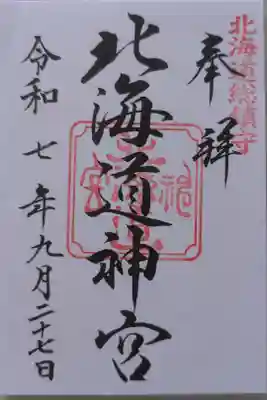 北海道総鎮守
奉拝
北海道神宮
令和七年九月二十七日